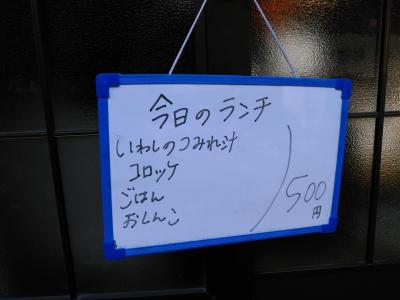 今日のランチ
いわしのつみれ汁
コロッケ
ごはん
おしんこ
500
円